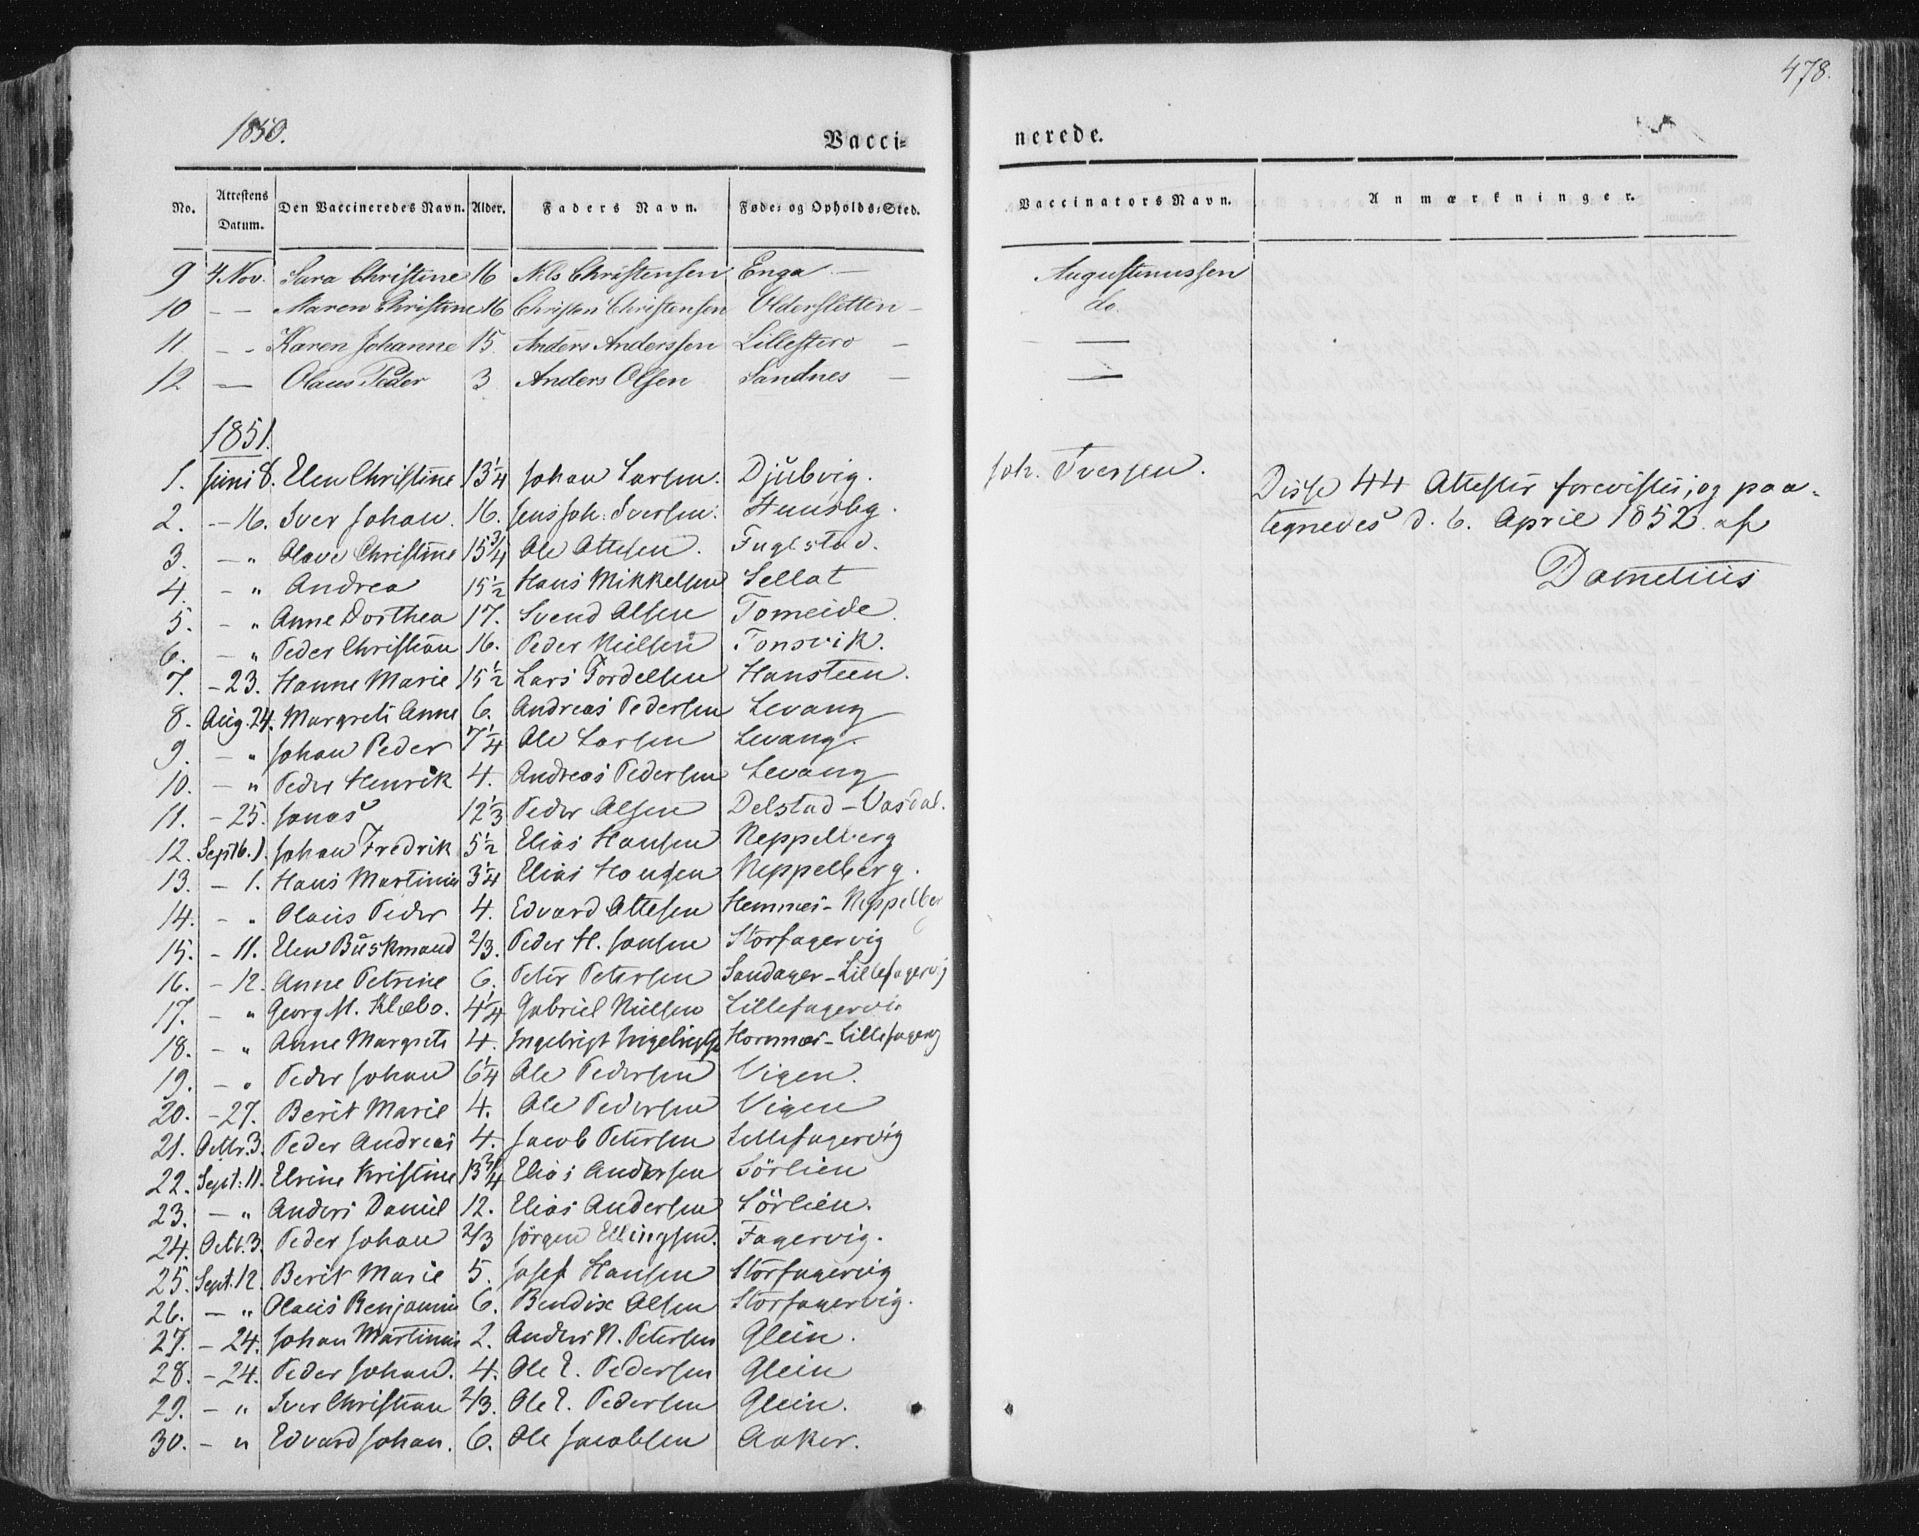 478.
1850.
Vacci=
nerede.
No. Attestens Datum. Den Vaccineredes Navn. Alder. Faders Navn. Føde- og Opholds-Sted. Vaccinators Navn. Anmærkninger.
9 4 Nov. Sara Christine 16 Nils Christensen Enga — Augustinussen
10 – – Maren Christine 16 Christen Christensen Oldersletten – do.
11. – – Karen Johanne 15. Anders Anderssen Lillestero – —
12 — Olaus Peder 3 Anders Olsen Sandnes – —
1851.
1. Juni 8. Elen Christine 13 1/4 Johan Larsen. Djubvig. Joh. Iversen.
2. – 16. Iver Johan. 16. Jens Joh. Iversen. Hunsbg.
3. – " Olave Christine 15 3/4 Ole Ottesen. Fuglstad.
4. – " Andrea 15 1/2 Hans Mikkelsen Sellat
5. – " Anne Dorthea 17. Svend Olsen Tomeide.
6. – " Peder Christian 16. Peder Nielsen Tonsvik.
7. – 23. Hanne Marie 15 1/2 Lars Tordelsen Hansteen.
8. Aug. 24. Margrete Anne 6. Andreas Pedersen Levang
9. – " Johan Peder 7 1/4 Ole Larsen Levang.
10. – " Peder Henrik 4. Andreas Pedersen Levang
11. – 25. Jonas 12 1/3 Peder Olsen Delstad – Vasdal.
12. Septb. 1. Johan Fredrik 5 1/2 Elias Hansen Neppelberg
13. – 1. Hans Martinus 3 1/4 Elias Hansen Neppelberg.
14. – " Olaus Peder 4. Edvard Ottesen Hemnes – Neppelber
15. – 11. Elen Buskmand 2/3. Peder H. Jansen Storfagervig
16. – 12. Anne Petrine 6. Peter Petersen Sandager – Lillefagervig
17. – " Georg M. Klæbo. 4 1/4 Gabriel Nielsen Lillefagervi
18. – " Anne Margrete 4. Ingebrigt Ingebrigts Hornnæs – Lillefagervig
19. – " Peder Johan 6 1/4 Ole Pedersen Vigen.
20. – 27. Berit Marie 4. Ole Pedersen Vigen
21. Octbr. 3. Peder Andreas 4. Jacob Petersen Lillefagervig
22. Sept. 11. Elrine Kristine 13 3/4 Elias Andersen Sörlien
23. – " Anders Daniel 12. Elias Andersen Sörlien.
24. Octb. 3. Peder Johan 2/3 Jörgen Ellingsen. Fagervig.
25. Sept. 12. Berit Marie 5. Josef Hansen Storfagervig
26. – " Olaus Benjamin 6. Bendix Olsen Storfagervig.
27. – 24. Johan Martinus 2. Anders N. Petersen Glein.
28. – 24. Peder Johan. 4. Ole E. Pedersen Glein
29. – " Iver Christian 2/3. Ole E. Pedersen Glein.
30. – " Edvard Johan. 6. Ole Jacobsen Aaker.
Disse 44 Attester forevistes, og paa-
tegnedes d. 6. April 1852 af